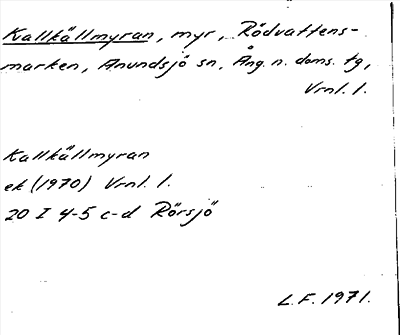 Kallkällmyran, myr, Rödvattens-
marken, Anundsjö sn, Ång. n. doms. tg,
Vrnl. l.
Kallkällmyran
ek (1970) Vrnl. l.
20 I 4-5 c-d Rörsjö
L.F. 1971.